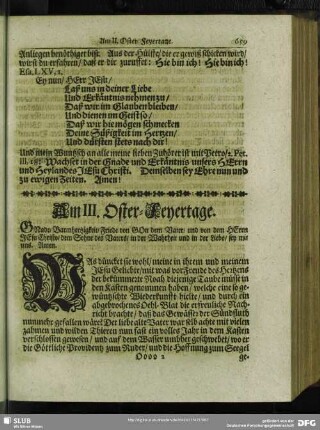 Am II. Oster-Feyertage. 659
Anliegen benöthiget bist: Aus der Hülffe/ die er gewiß schicken wird/
wirst du erfahren/ daß er dir zuruffet: Hie bin ich! Hie bin ich!
Esa. LXV, 1.
Ey nun/ HErr JEsu/
Laß uns in deiner Liebe
Und Erkäntnis nehmen zu/
Daß wir im Glauben bleiben/
Und dienen im Geist so/
Daß wir hie mögen schmecken
Deine Süßigkeit im Hertzen/
Und dürsten stets nach dir!
Und mein Wunsch an alle meine lieben Zuhörer ist mit Petro/ 2. Pet.
III. 18: Wachset in der Gnade und Erkäntnis unsers HErrn
und Heylandes JEsu Christi. Demselben sey Ehre nun und
zu ewigen Zeiten. Amen!
Am III. Oster-Feyertage.
GNade/ Barmhertzigkeit/ Friede von GOtt dem Vater/ und von dem HErrn
JEsu Christo/ dem Sohne des Vaters/ in der Wahrheit und in der Liebe/ sey mit
uns. Amen.
WAs düncket sie wohl/ meine in ihren und meinem
JEsu Geliebte/ mit was vor Freude des Hertzens
der bekümmerte Noah diejenige Taube müsse in
den Kasten genommen haben/ welche eine so ge-
wünschte Wiederkunfft hielte/ und durch ein
abgebrochenes Oehl-Blat die erfreuliche Nach-
richt brachte/ daß das Gewässer der Sündfluth
nunmehr gefallen wäre! Der liebe alte Vater war selb achte mit vielen
zahmen und wilden Thieren nun fast ein volles Jahr in dem Kasten
verschlossen gewesen/ und auf dem Wasser umbher geschwebet/ wo er
die Göttliche Providentz zum Ruder/ und die Hoffnung zum Seegel
Oooo 2 ge-
SLUB
Wir führen Wissen.
gefördert von der
Deutschen Forschungsgemeinschaft
DFG